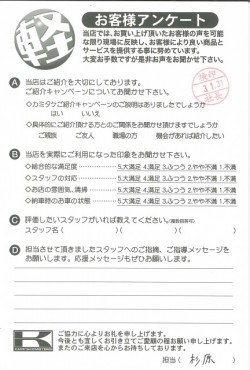 軽
お客様アンケート
当店では、お買い上げ頂いたお客様の声を可能
な限り現場に反映し、お客様により良い商品と
サービスを提供する事に努めています。
大変お手数ですが是非お声をお聞かせ下さい。
A 当店はご紹介を大切にしております。
ご紹介キャンペーンについてお聞かせ下さい。
◇カミタケご紹介キャンペーンのご説明はありましたでしょうか
はい いいえ
◇具体的にご紹介頂ける方とのご関係をお聞かせ頂けますでしょうか
ご親族 ご友人 職場の方 機会があれば紹介したい
B 当店を実際にご利用になった印象をお聞かせ下さい。
◇総合的な満足度 5.大満足 4.満足 3.ふつう 2.やや不満 1.不満
◇スタッフの対応 5.大満足 4.満足 3.ふつう 2.やや不満 1.不満
◇お店の雰囲気、清掃 5.大満足 4.満足 3.ふつう 2.やや不満 1.不満
◇納車時のお車の状態 5.大満足 4.満足 3.ふつう 2.やや不満 1.不満
C 評価したいスタッフがいれば教えてください。(複数回答可)
スタッフ名( )( )( )
D 担当させて頂きましたスタッフへのご指摘、ご指導メッセージを
お願いします。応援メッセージもぜひお願いします。
K
ご協力に心よりお礼を申し上げます。
今後とも宜しくお引き立てご愛顧の程お願い申し上げます。
またのご来店を心からお待ちしております。
担当( 杉原 )